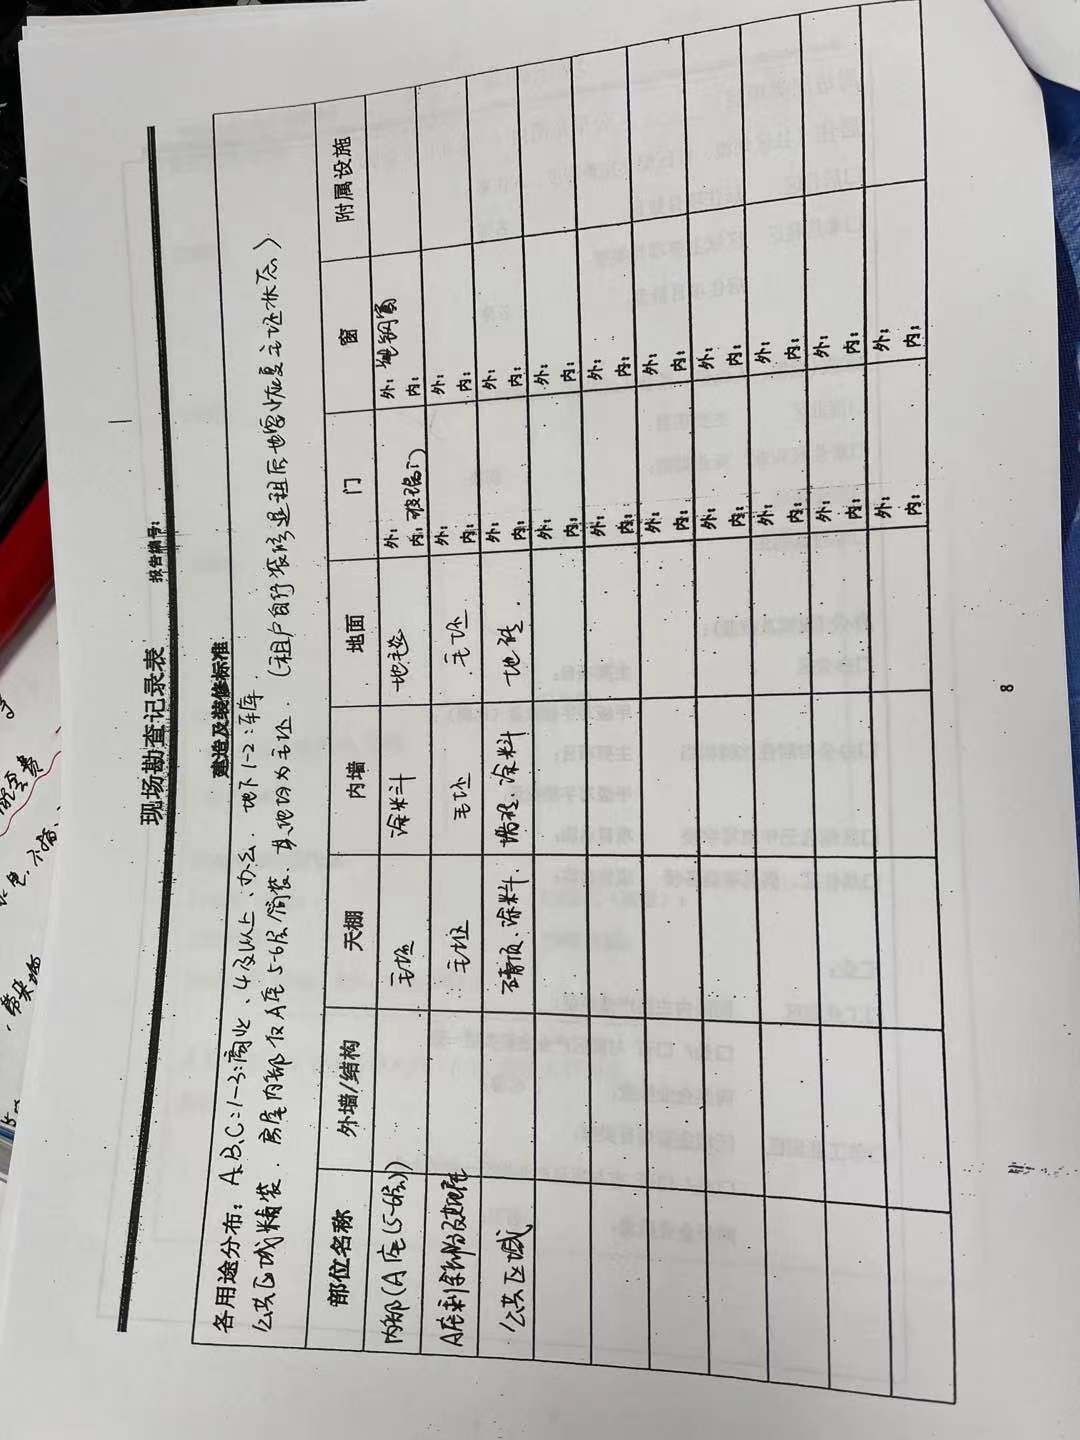 现场勘查记录表
报告编号:
建造及装修标准
各用途分布: A、B、C:1-3:商业、4及以上:办公. 地下1-2:车库.
公共区域精装. 房屋内部仅A座5-6层简装. 其他均为毛坯. (租户自行装修退租后也需恢复毛坯状态)
部位名称 外墙/结构 天棚 内墙 地面 门 窗 附属设施
内部(A座(5-6层)) 毛坯 涂料 地毯 外: 内:玻璃门 外:塑钢窗 内:
毛坯 毛坯 毛坯 外: 内: 外: 内:
公共区域 石膏顶、涂料. 墙砖、涂料 地砖. 外: 内: 外: 内:
外: 内: 外: 内:
外: 内: 外: 内:
外: 内: 外: 内:
外: 内: 外: 内:
外: 内: 外: 内:
外: 内: 外: 内:
外: 内: 外: 内:
8